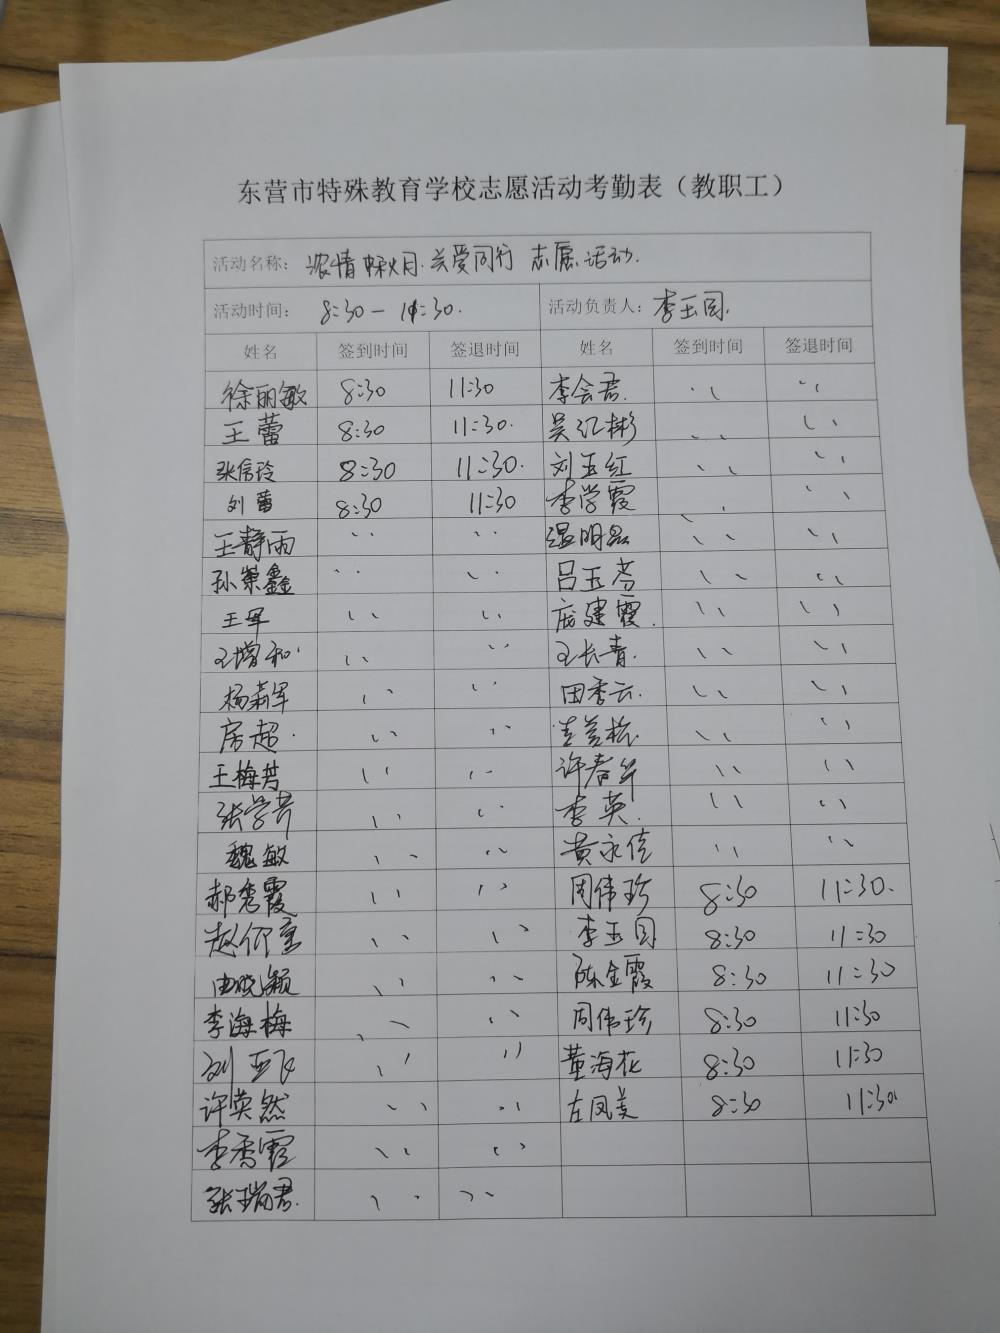 东营市特殊教育学校志愿活动考勤表（教职工）
活动名称：浓情中秋月.关爱同行 志愿活动.
活动时间：8:30－11:30. 活动负责人：李玉国.
姓名 签到时间 签退时间 姓名 签到时间 签退时间
徐丽敏 8:30 11:30 李会君. 〃 〃
王蕾 8:30 11:30. 吴红彬 〃 〃
张信玲 8:30 11:30. 刘玉红 〃 〃
刘蕾 8:30 11:30 李学霞 〃 〃
王静雨 〃 〃 温明磊 〃 〃
孙荣鑫 〃 〃 吕玉芬 〃 〃
王军 〃 〃 庞建霞. 〃 〃
王增和 〃 〃 王长青. 〃 〃
杨新军 〃 〃 田秀云. 〃 〃
房超. 〃 〃 〃 〃
王梅芳 〃 〃 许春华 〃 〃
张学芹 〃 〃 李英. 〃 〃
魏敏 〃 〃 黄永佳 〃 〃
郝秀霞 〃 〃 周伟珍 8:30 11:30.
赵仰童 〃 〃 李玉国 8:30 11:30
由晓颖 〃 〃 陈金霞 8:30 11:30
李海梅 〃 〃 周伟珍 8:30 11:30
刘亚飞 〃 〃 董海花 8:30 11:30
许英然 〃 〃 左凤美 8:30 11:30
李香霞 〃 〃
张瑞君. 〃 〃